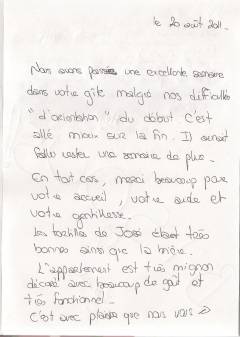 le 20 août 2011.
Nous avons passé une excellente semaine
dans votre gîte malgré nos difficultés
"d'orientation" du début C'est
allé mieux sur la fin. Il aurait
fallu rester une semaine de plus.
En tout cas, merci beaucoup pour
votre accueil, votre aide et
votre gentillesse.
Les tortillas de José étaient très
bonnes ainsi que la bière.
L'appartement est très mignon
décoré avec beaucoup de goût et
très fonctionnel.
C'est avec plaisir que nous